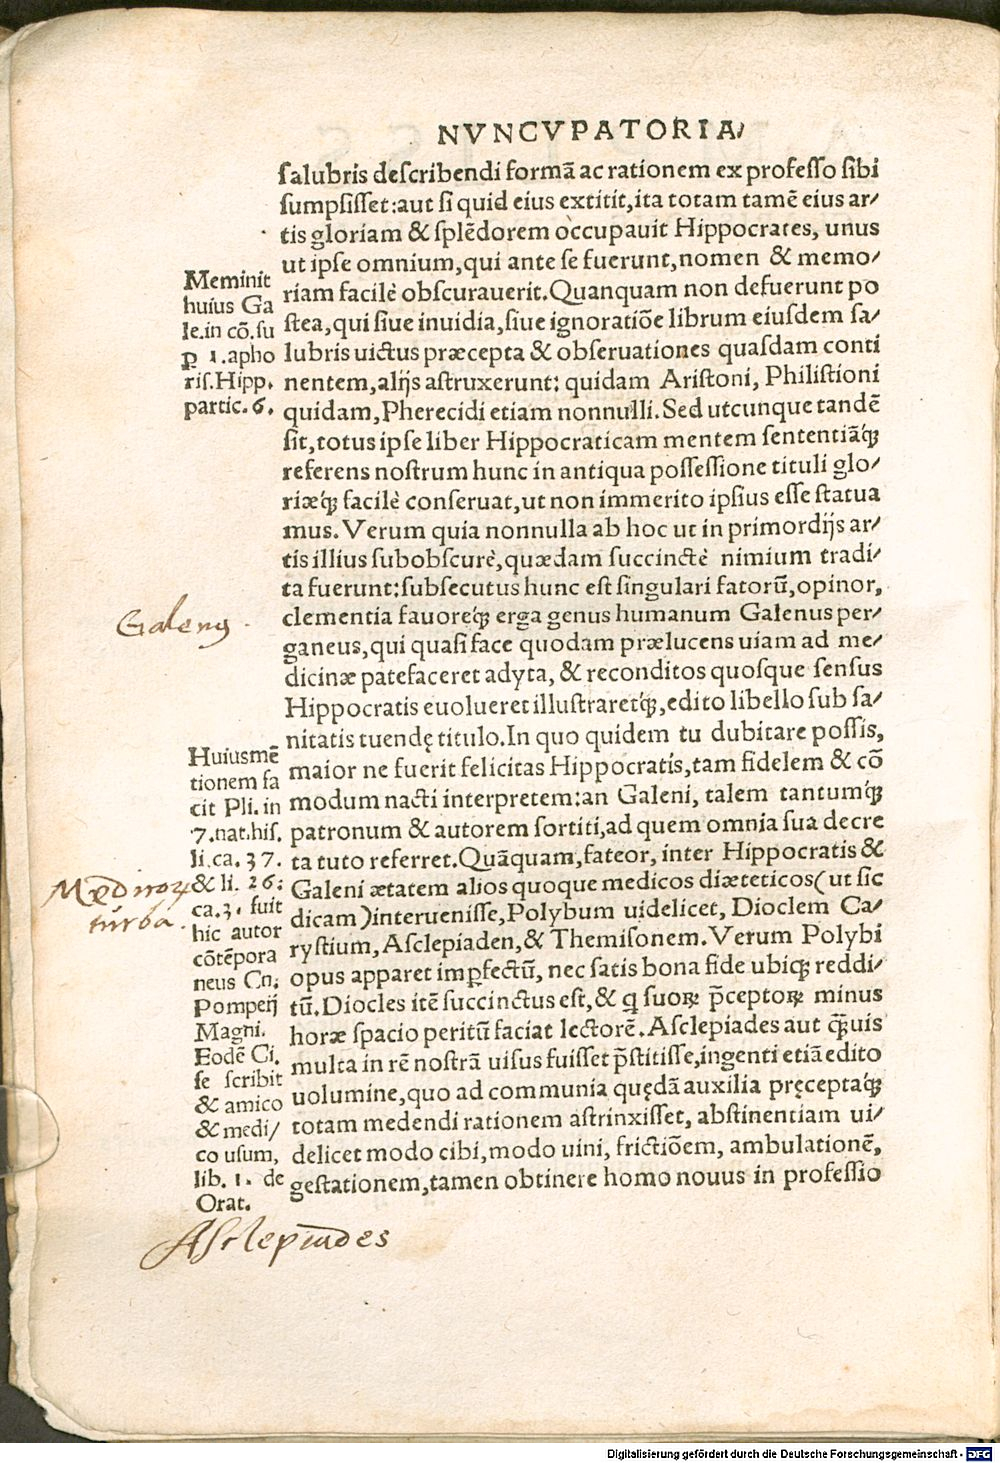 NVNCVPATORIA
salubris describendi formā ac rationem ex professo sibi
sumpsisset: aut si quid eius extitit, ita totam tamē eius ar/
tis gloriam & splēdorem occupauit Hippocrates, unus
ut ipse omnium, qui ante se fuerunt, nomen & memo/
riam facilè obscurauerit. Quanquam non defuerunt po
stea, qui siue inuidia, siue ignoratiōe librum eiusdem sa/
lubris uictus præcepta & obseruationes quasdam conti
nentem, alijs astruxerunt: quidam Aristoni, Philistioni
quidam, Pherecidi etiam nonnulli. Sed utcunque tandē
sit, totus ipse liber Hippocraticam mentem sententiāq́;
referens nostrum hunc in antiqua possessione tituli glo/
riæq́; facilè conseruat, ut non immerito ipsius esse statua
mus. Verum quia nonnulla ab hoc ut in primordijs ar/
tis illius subobscurè, quædam succinctè nimium tradi/
ta fuerunt: subsecutus hunc est singulari fatorū, opinor,
clementia fauoreq́; erga genus humanum Galenus per/
ganeus, qui quasi face quodam prælucens uiam ad me/
dicinæ patefaceret adyta, & reconditos quosque sensus
Hippocratis euolueret illustraretq́;, edito libello sub sa/
nitatis tuendę titulo. In quo quidem tu dubitare possis,
maior ne fuerit felicitas Hippocratis, tam fidelem & cō
modum nacti interpretem: an Galeni, talem tantumq́;
patronum & autorem sortiti, ad quem omnia sua decre
ta tuto referret. Quāquam, fateor, inter Hippocratis &
Galeni ætatem alios quoque medicos diæteticos (ut sic
dicam) interuenisse, Polybum uidelicet, Dioclem Ca/
rystium, Asclepiaden, & Themisonem. Verum Polybi
opus apparet imꝑfectū, nec satis bona fide ubiq; reddi/
tū. Diocles itē succinctus est, & q suoꝝ p̄ceptoꝝ minus
horæ spacio peritū faciat lectorē. Asclepiades aut q̄uis
multa in rē nostrā uisus fuisset p̄stitisse, ingenti etiā edito
uolumine, quo ad communia quędā auxilia pręceptaq́;
totam medendi rationem astrinxisset, abstinentiam ui/
delicet modo cibi, modo uini, frictiōem, ambulationē,
gestationem, tamen obtinere homo nouus in professio
Meminit
huius Ga
le. in cō. su
ꝑ 1. apho
ris. Hipp.
partic. 6.
Galenꝰ
Huius mē
tionem fa
cit Pli. in
7. nat. his.
li. ca. 37.
& li. 26:
ca. 3. fuit
hic autor
cōtēpora
neus Cn:
Pompeij
Magni.
Eodē Ci.
se scribit
& amico
& medi/
co usum,
lib. 1. de
Orat.
Mędicoꝝ
turba.
Asclepiades
Digitalisierung gefördert durch die Deutsche Forschungsgemeinschaft - DFG